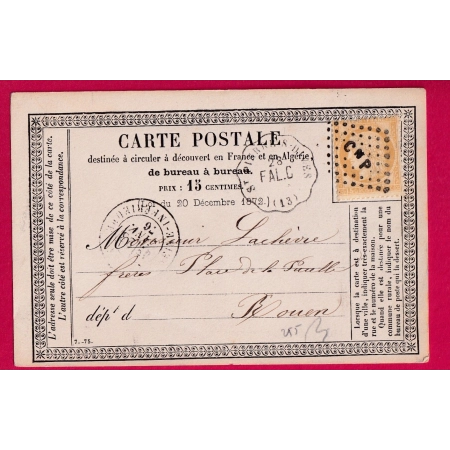 CARTE POSTALE
destinée à circuler à découvert en France et en Algérie
de bureau à bureau.
PRIX : 15 CENTIMES
du 20 Décembre 1872.
28
FAL.C
(13)
CMP
L'adresse seule doit être mise de ce côté de la carte.
L'autre côté est réservé à la correspondance.
Monsieur Lachèvre
frères Place de la Pucelle
Rouen
dép't d
Lorsque la carte est à destination
d'une ville, indiquer très-exactement la
rue et le numéro de la maison.
Quand elle est destinée pour une
commune rurale, indiquer le nom du
bureau de poste qui la dessert.
7.-75.